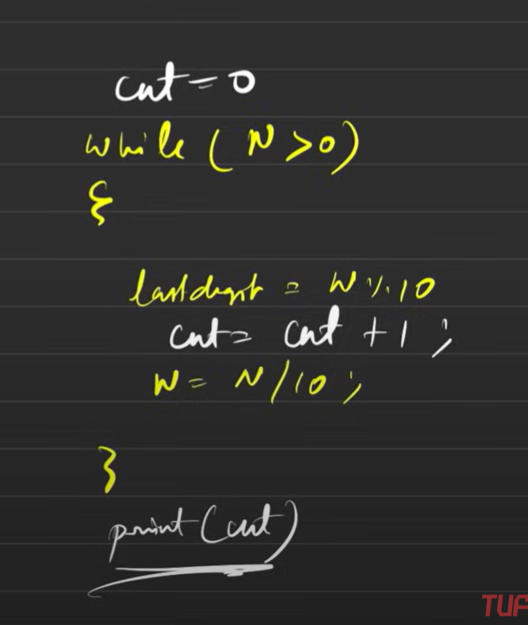 cnt = 0
while (N > 0)
{
lastdigit = N % 10
cnt = cnt + 1 ;
N = N / 10 ;
}
print (cnt)
TUF